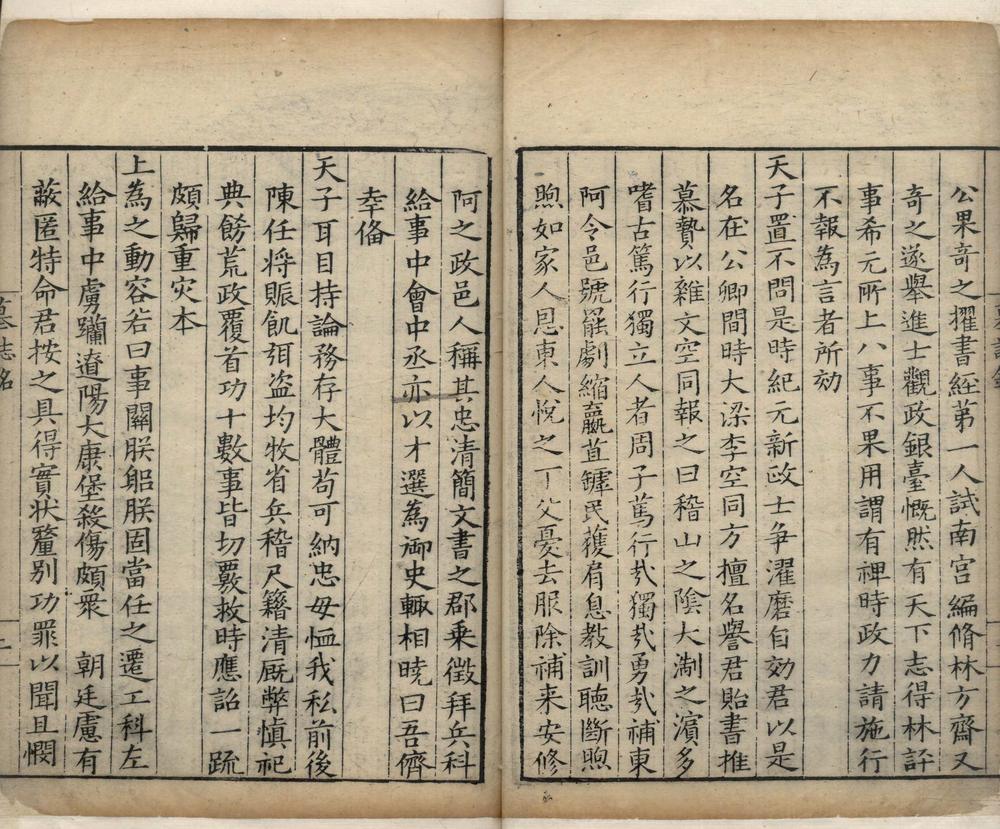 公果奇之擢書經第一人試南宫編脩林方齋又
奇之遂舉進士觀政銀臺慨然有天下志得林評
事希元所上八事不果用謂有禆時政力請施行
不報為言者所劾
天子置不問是時紀元新政士争濯磨自効君以是
名在公卿間時大梁李空同方擅名譽君貽書推
慕贄以雜文空同報之曰稽山之陰大淛之濵多
嗜古篤行獨立人者周子篤行㢤獨㢤勇㢤補東
阿令邑號罷劇縮羸苴罅民獲肩息教訓聽斷煦
煦如家人恩東人悅之丁父憂去服除補来安修
阿之政邑人稱其忠清簡文書之郡乗徵拜兵科
給事中會中丞亦以才選為御史輙相曉曰吾儕
幸俻
天子耳目持論務存大體苟可納忠毋恤我私前後
陳任将賑飢弭盗均牧省兵稽尺籍清厩弊慎祀
典餝荒政覆首功十數事皆切覈救時應詔一䟽
頗歸重灾本
上為之動容若曰事關朕躬朕固當任之遷工科左
給事中虜躪遼陽大康堡殺傷頗衆　朝廷慮有
蔽匿特命君按之具得實状釐别功罪以聞且憫
墓志銘